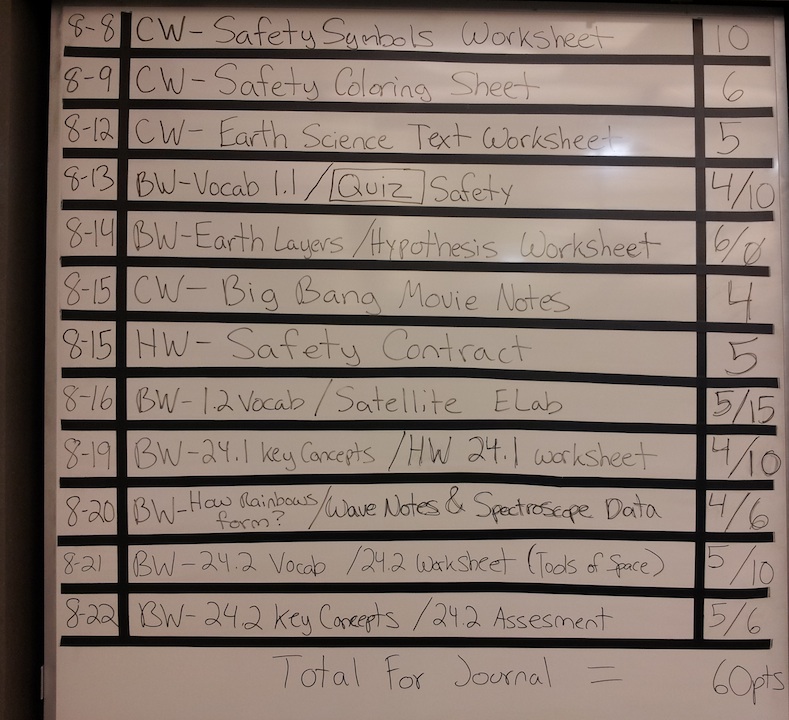 8-8 CW-Safety Symbols Worksheet 10
8-9 CW-Safety Coloring Sheet 6
8-12 CW-Earth Science Text Worksheet 5
8-13 BW-Vocab 1.1/Quiz Safety 4/10
8-14 BW-Earth Layers/Hypothesis Worksheet 6/0
8-15 CW-Big Bang Movie Notes 4
8-15 HW-Safety Contract 5
8-16 BW-1.2 Vocab/Satellite ELab 5/15
8-19 BW-24.1 Key Concepts/HW 24.1 worksheet 4/10
8-20 BW-How Rainbows form?/Wave Notes & Spectroscope Data 4/6
8-21 BW-24.2 Vocab/24.2 Worksheet (Tools of Space) 5/10
8-22 BW-24.2 Key Concepts/24.2 Assesment 5/6
Total For Journal = 60pts